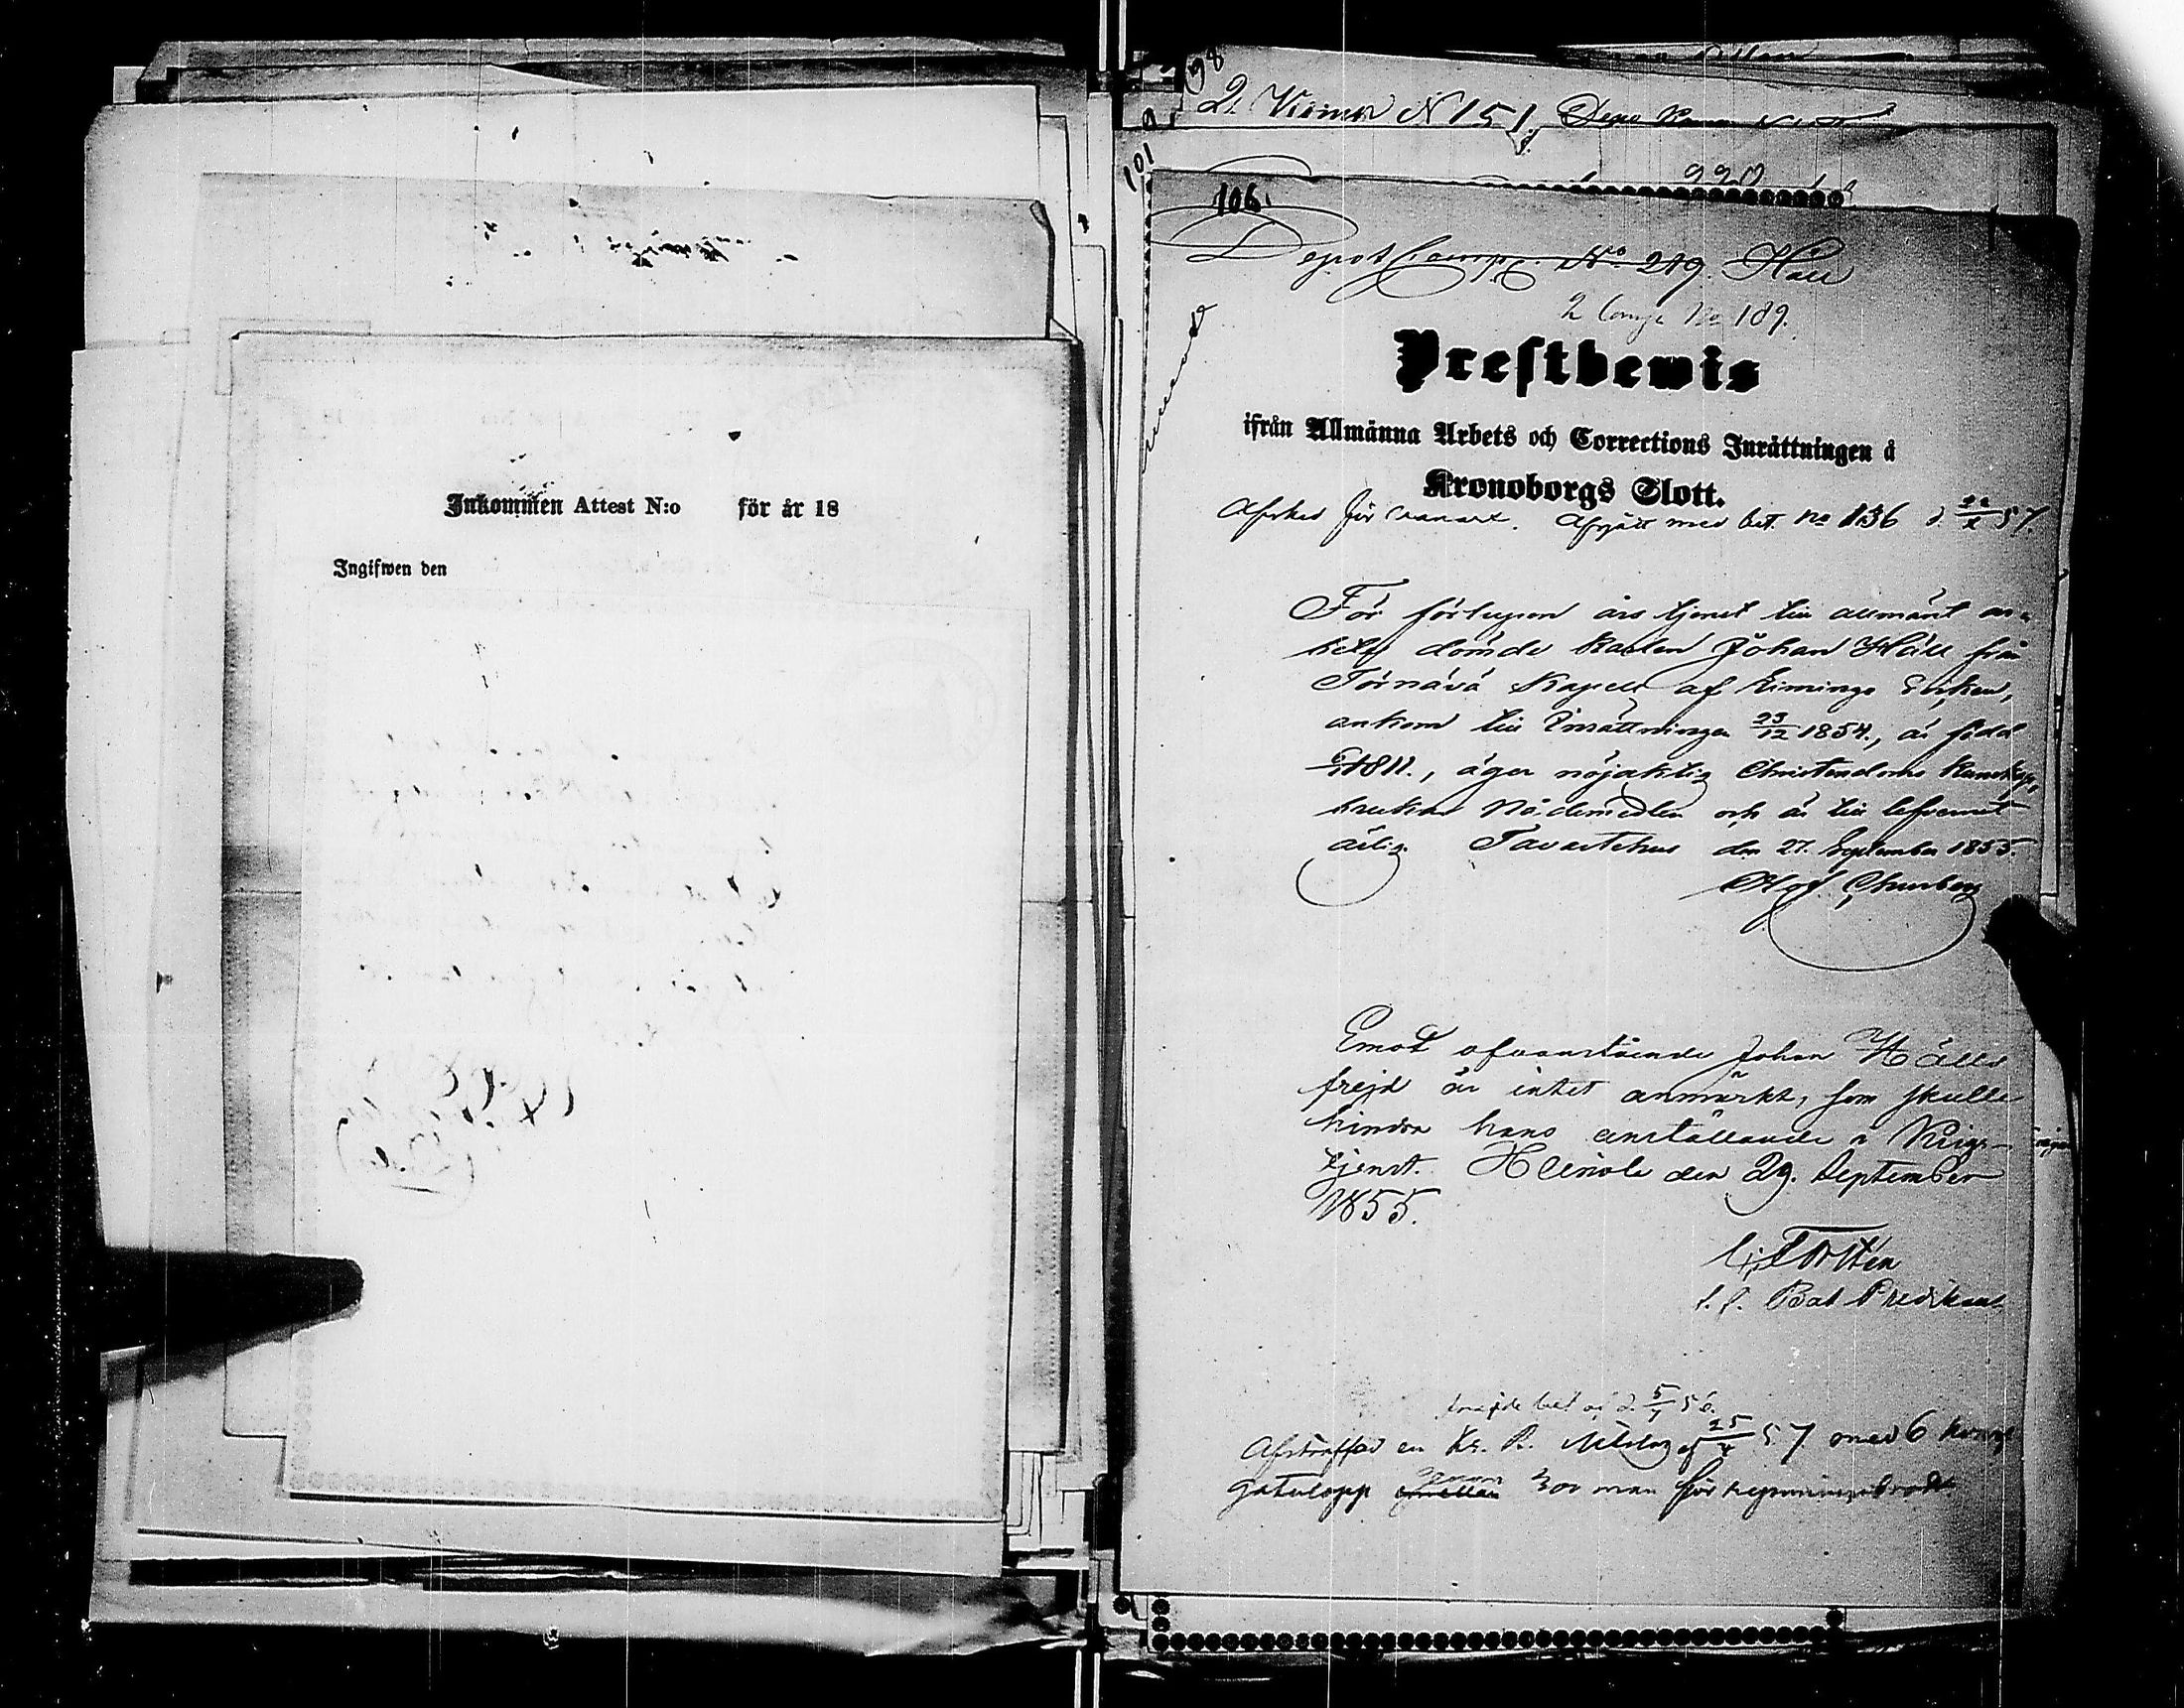 Inkommen Attest N:o för år 18
Ingifwen den
98
2. N 151.
101
106.
Depot Comp. No 219. Häll
2 Comp No 189.
Prestbewis
ifrån Allmänna Arbets och Corrections Inrättningen å
Kronoborgs Slott.
Afsked för Afgått med bet. No 136 d. 57.
För förlupen års tjenst till allmänt ar-
bete dömde karlen Johan Häll från
Törnävä Kapell af Socken,
ankom till Inrättningen 23/12 1854., är född
1811., äger nöjaktig Christendoms kunskap,
brukar Nådemedlen och är till lefvernet
ärlig Tavastehus den 27. September 1855.
Emot ofvanstående Johan Hälls
frejd är intet anmärkt, som skulle
hindra hans anställande i Krigs-
tjenst. Heinola den 29. September
1855.
t. f. Bat Predikant
bet af d. 5/7 56.
Afstraffad en Kr. R. Utslag af 25/4 57 med 6 
gatulopp genom 300 man för rymningsbrott